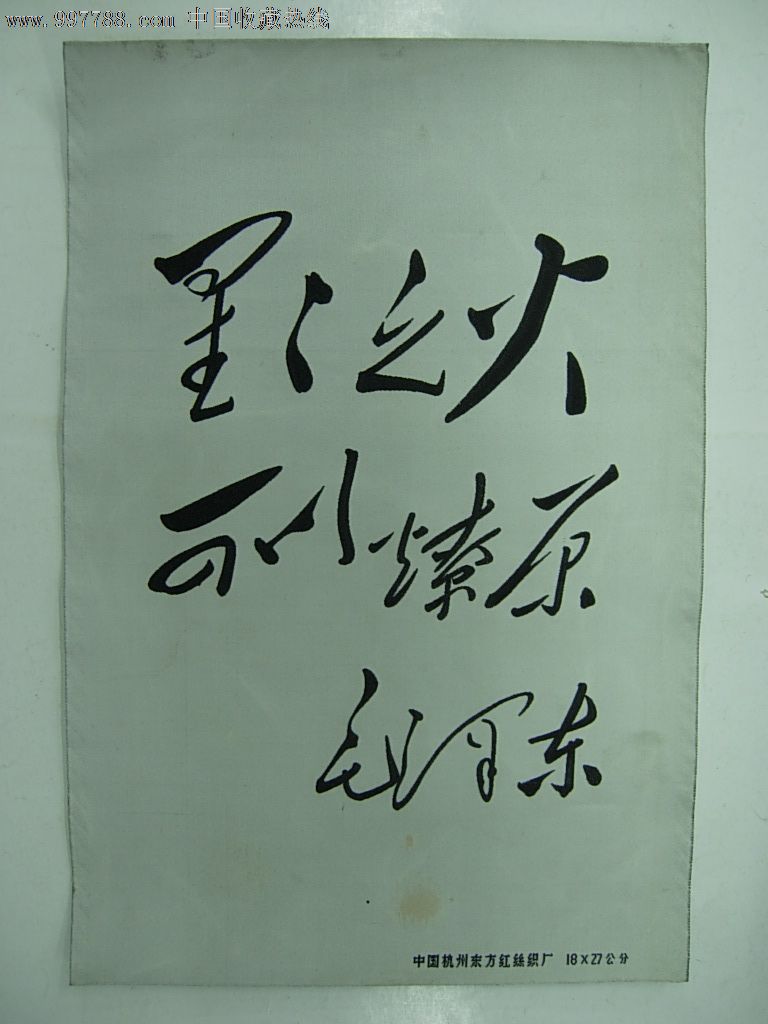 www.997788.com 中国收藏热线
星星之火
可以燎原
毛泽东
中国杭州东方红丝织厂 18×27公分